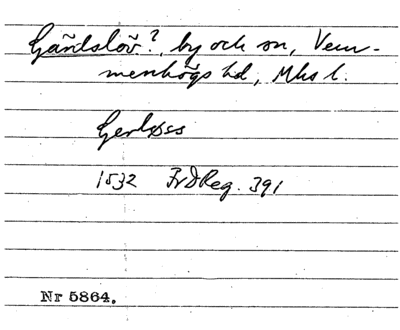 Gärdslöv?, by och sn, Vem-
menhögs hd, Mhs l.
Gerløss
1532 FrdReg. 391
Nr 5864.